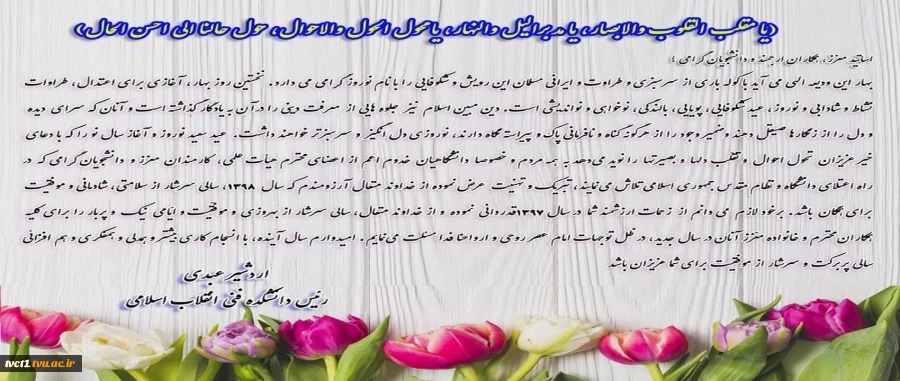 (یا مقلب القلوب والابصار، یا مدبر الیل والنهار، یا محول الحول والاحوال، حول حالنا الی احسن الحال)
اساتید معزز، همکاران ارجمند و دانشجویان گرامی؛
بهار این ودیعه الهی می آید با کوله باری از سرسبزی و طراوت و ایرانی مسلمان این رویش و شکوفایی را با نام نوروز گرامی می دارد. نخستین روز بهار، آغازی برای اعتدال، طراوات
نشاط و شادابی و نوروز، عید شکوفایی، پویایی، بالندگی، نوخواهی و نواندیشی است. دین مبین اسلام نیز جلوه هایی از معرفت دینی را در آن به یادگار گذاشته است و آنان که سرای دیده
و دل را از زنگارها صیقل دهند و ضمیر وجود را از هرگونه گناه و نافرمانی پاک و پیراسته نگاه دارند، نوروزی دل انگیز و سرسبزتر خواهند داشت. عید سعید نوروز و آغاز سال نو را که با دعای
خیر عزیزان تحول احوال و تقلب دلها و بصیرتها را نوید می‌دهد به همه مردم و خصوصا دانشگاهیان خدوم اعم از اعضای محترم هیأت علمی، کارمندان معزز و دانشجویان گرامی که در
راه اعتلای دانشگاه و نظام مقدس جمهوری اسلامی تلاش می‌نمایند، تبریک و تهنیت عرض نموده از خداوند متعال آرزومندم که سال ۱۳۹۸، سالی سرشار از سلامتی، شادمانی و موفقیت
برای همگان باشد. برخود لازم می دانم از زحمات ارزشمند شما در سال ۱۳۹۷قدردانی نموده و از خداوند متعال، سالی سرشار از بهروزی و موفقیت و ایامی نیک و پربار را برای کلیه
همکاران محترم و خانواده معزز آنان در سال جدید، در ظل توجهات امام عصر روحی و ارواحنا فدا مسئلت می‌نمایم. امیدوارم سال آینده، با انجام کاری بیشتر و همدلی و همفکری و هم افزائی
سالی پربرکت و سرشار از موفقیت برای شما عزیزان باشد
اردشیر عبدی
رئیس دانشکده فنی انقلاب اسلامی
tvct1.tvu.ac.ir